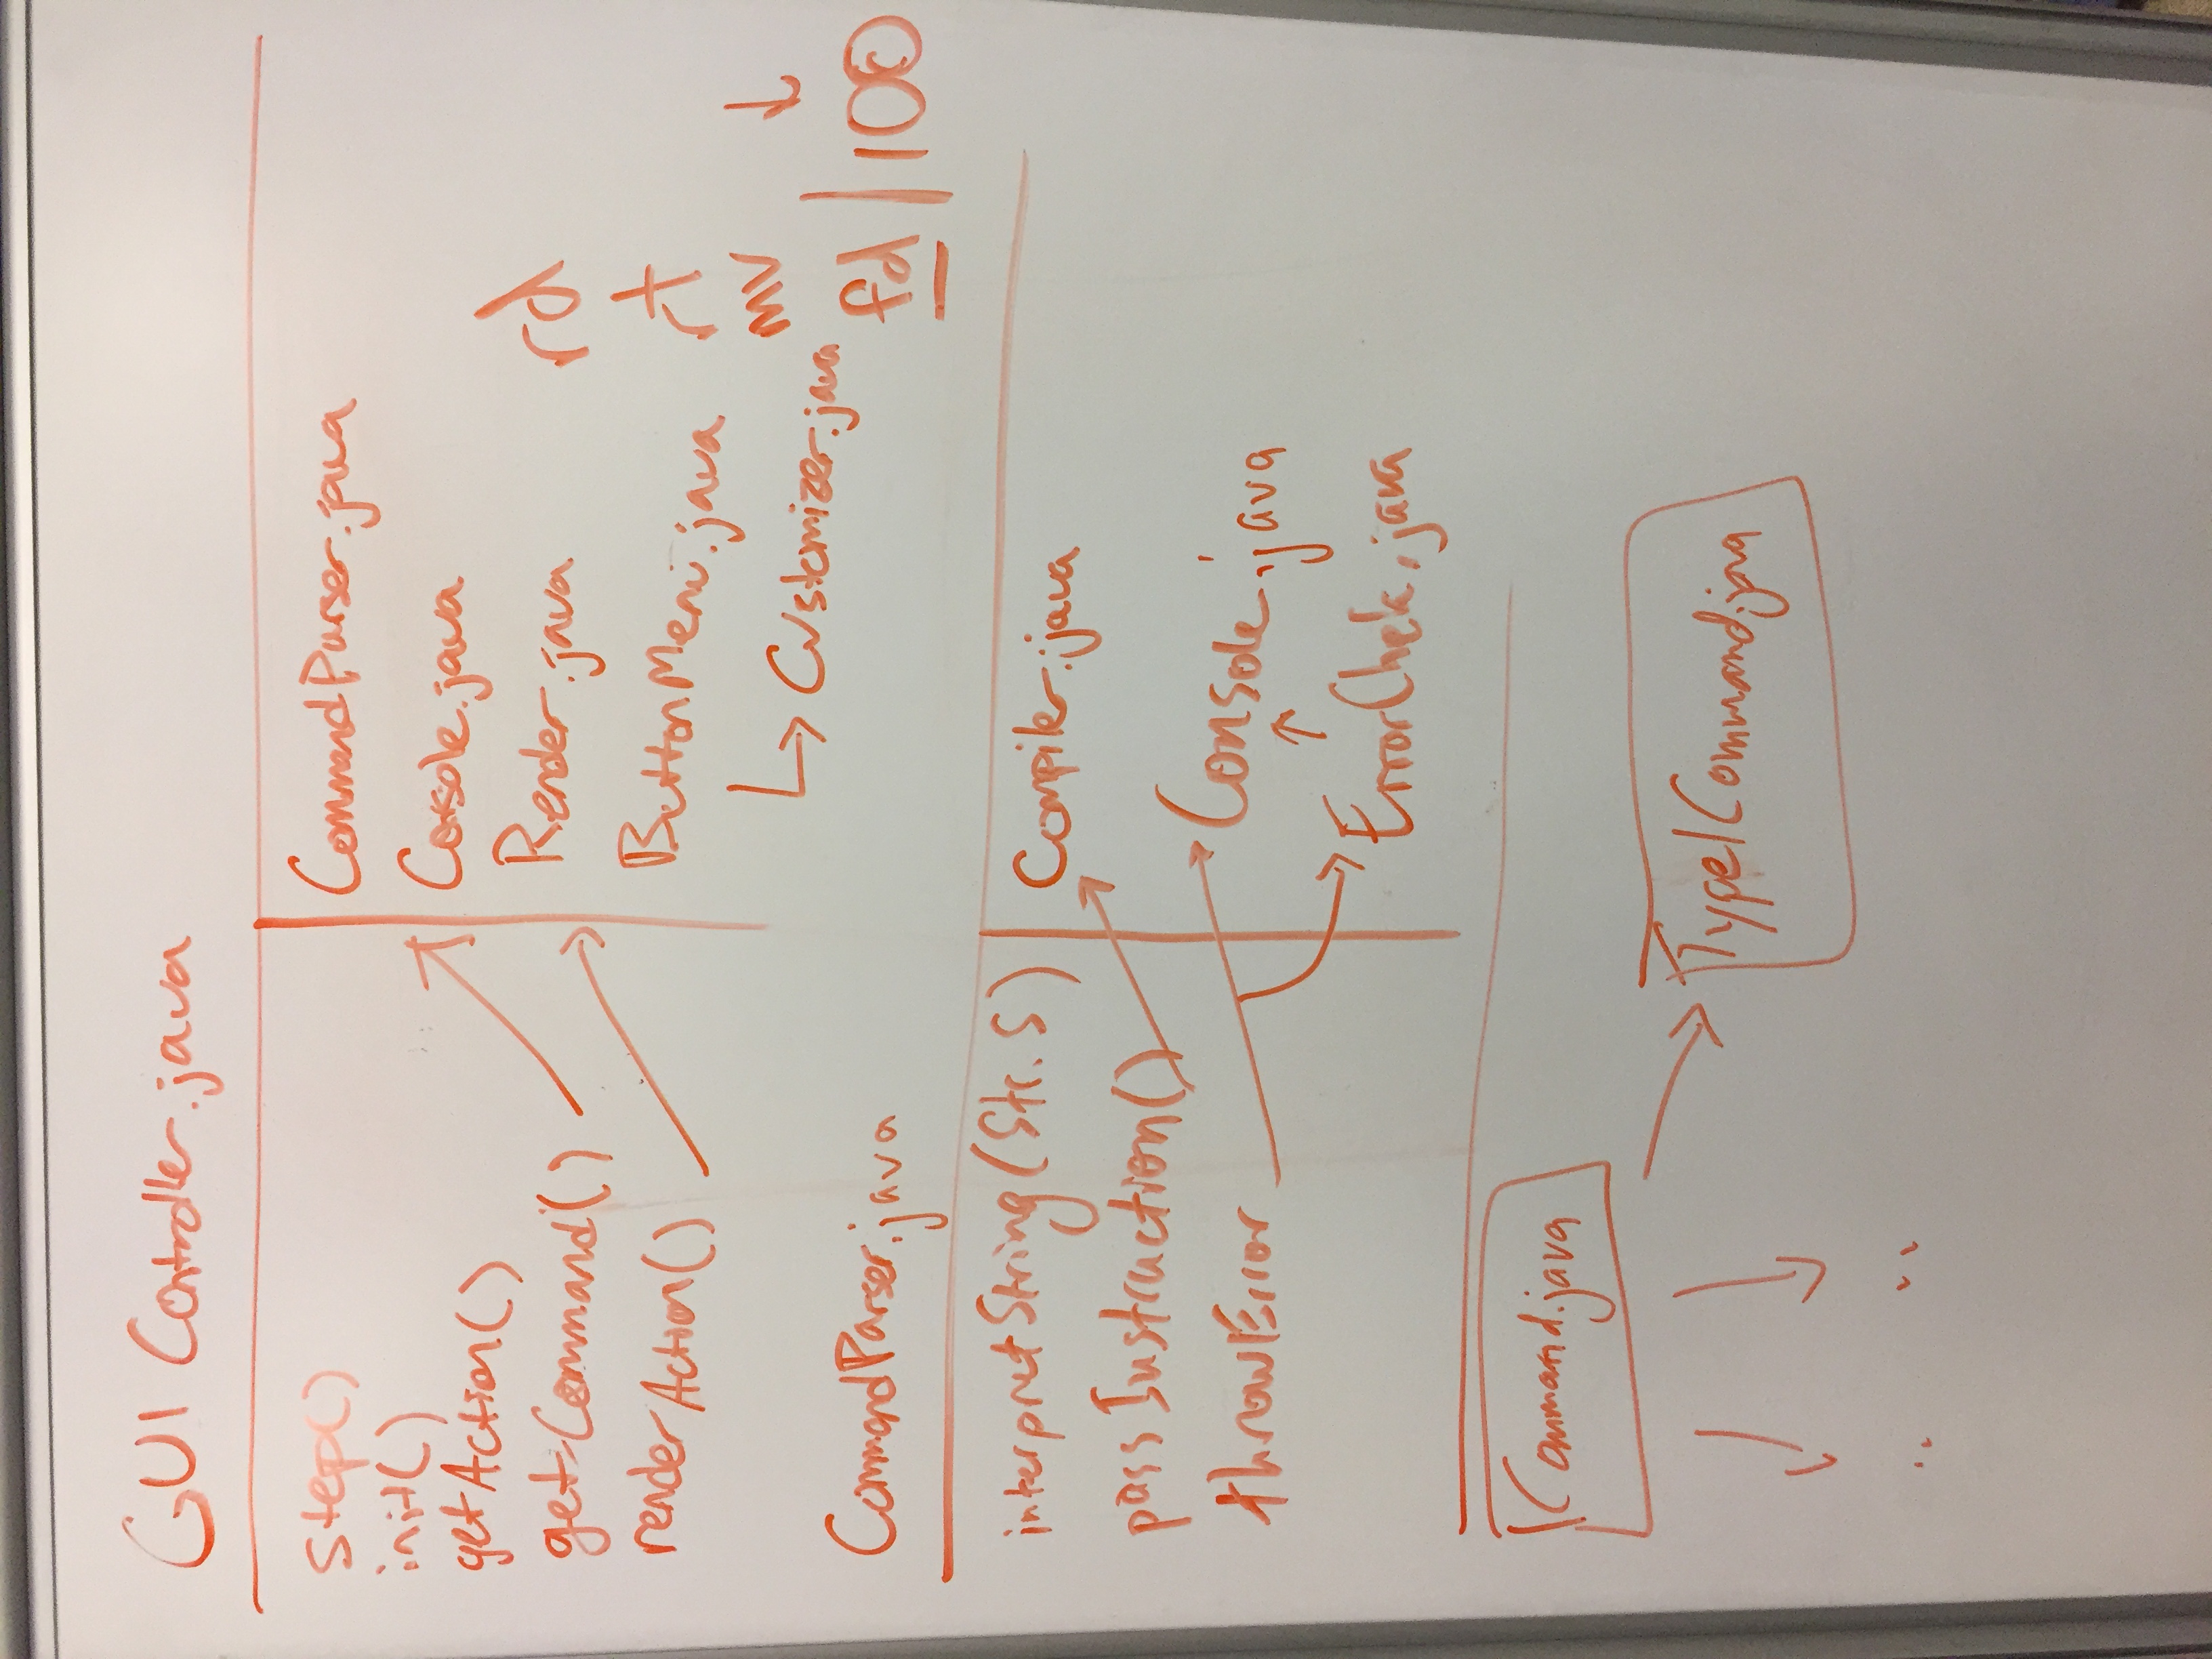 GUI Controller.java
step()
init()
getAction()
get-Command()
renderAction()
CommandParser.java
Console.java
Render.java
ButtonMenu.java
Customizer.java
rd
rt
mv
fd | 100
CommandParser.java
interpretString(Str. S)
passInstruction()
throwError
Compiler.java
Console.java
ErrorChek.java
Command.java
Type1Command.java